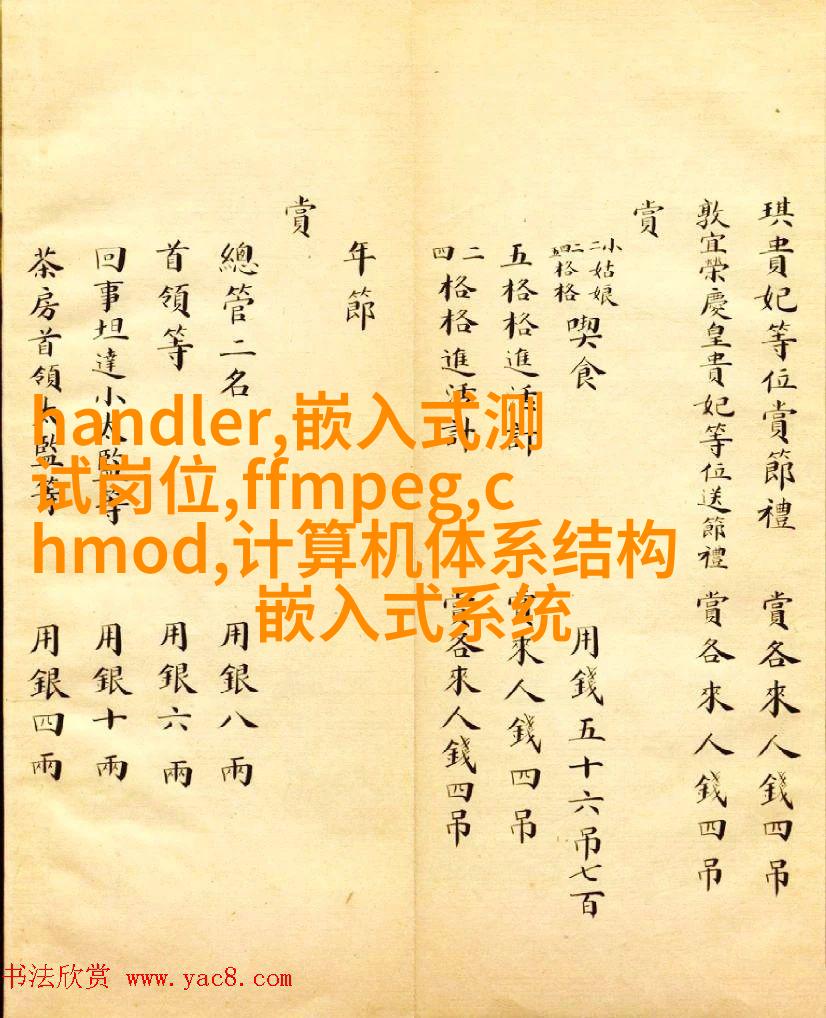 琪貴妃等位賞節禮 賞各來人錢四吊
敦宜榮慶皇貴妃等位送節禮 賞各來人錢四吊
賞
小姑娘 格格 喫食 用錢五十六吊七百
五格格進活計 賞各來人錢四吊
二四格格進活計 賞各來人錢四吊
年節
賞
總管二名 用銀八兩
首領等 用銀六兩
回事坦達小太監等 用銀十兩
茶房首領太監等 用銀四兩
handler,嵌入式测
试岗位,ffmpeg,c
hmod,计算机体系结构
嵌入式系统
书法欣赏 www.yac8.com